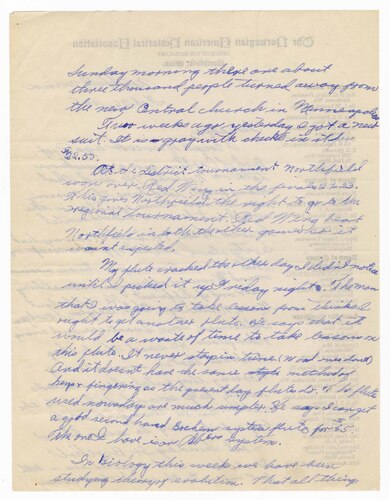 The Norwegian American Historical Association
Northfield, Minn.
Sunday morning there are about
three thousand people turned away from
the new Central church in Minneapolis
Two weeks ago yesterday I got a new
suit. It is gray with checks in it for
$26.50.
At the district tournament Northfield
won over Red Wing in the finals
This gives Northfield the right to go to the
regional tournament. Red Wing beat
Northfield in both the other games so it
wasn't expected.
My flute cracked the other day. I didn't notice
until I picked it up Friday night. The man
that I was going to take lessons from thinks I
ought to get another flute. He says that it
would be a waste of time to take lessons on
this flute. It never stays in tune
And it doesn't have the same style method of
keys & fingering as the present day flute do. The flute
used nowadays are much simpler. He says I can get
a good second hand Boehm system flute for
The one I have is a system.
In Biology this week we have been
studying theory of evolution. That all things